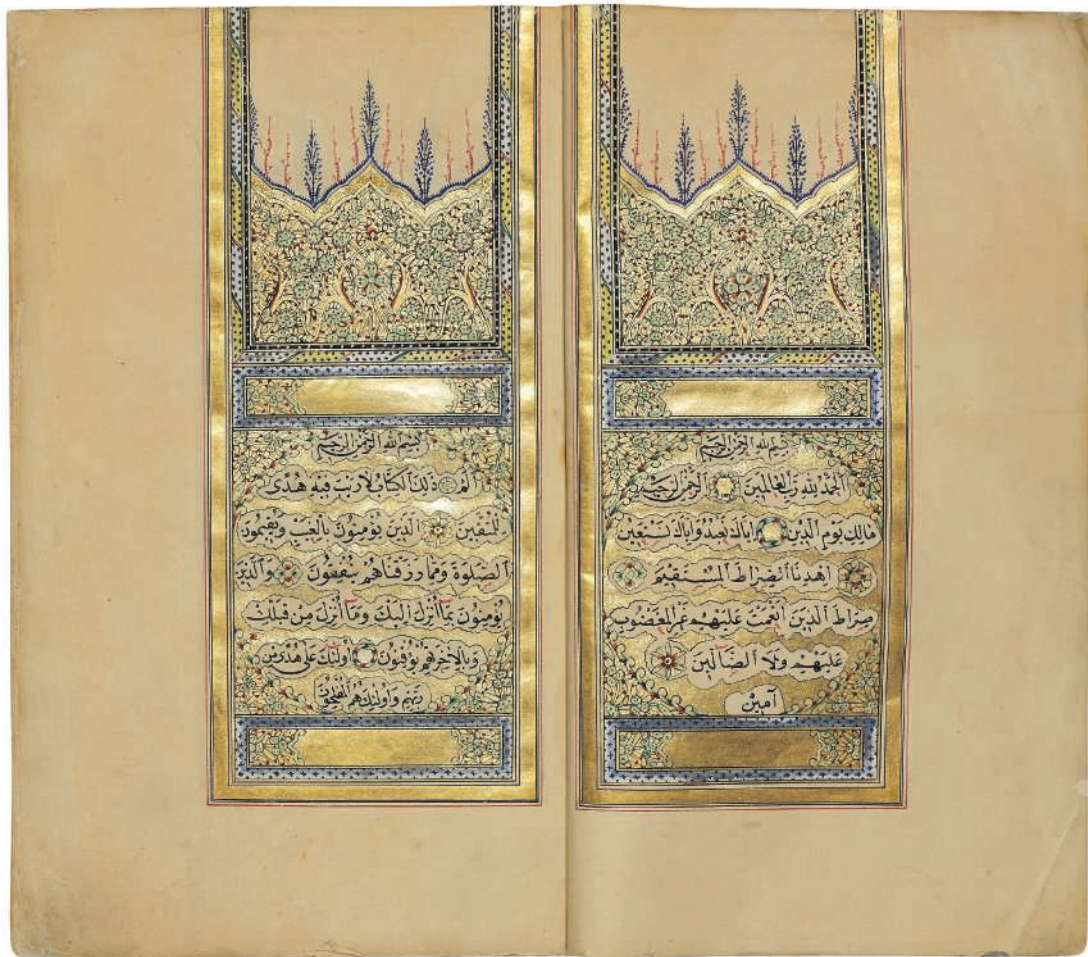 بسم الله الرحمن الرحيم
الحمد لله رب العالمين الرحمن الرحيم
مالك يوم الدين اياك نعبد واياك نستعين
اهدنا الصراط المستقيم
صراط الذين انعمت عليهم غير المغضوب
عليهم ولا الضالين
آمين
بسم الله الرحمن الرحيم
الم ذلك الكتاب لا ريب فيه هدى
للمتقين الذين يؤمنون بالغيب ويقيمون
الصلوة ومما رزقناهم ينفقون والذين
يؤمنون بما انزل اليك وما انزل من قبلك
وبالاخرة هم يوقنون اولئك على هدى من
ربهم واولئك هم المفلحون